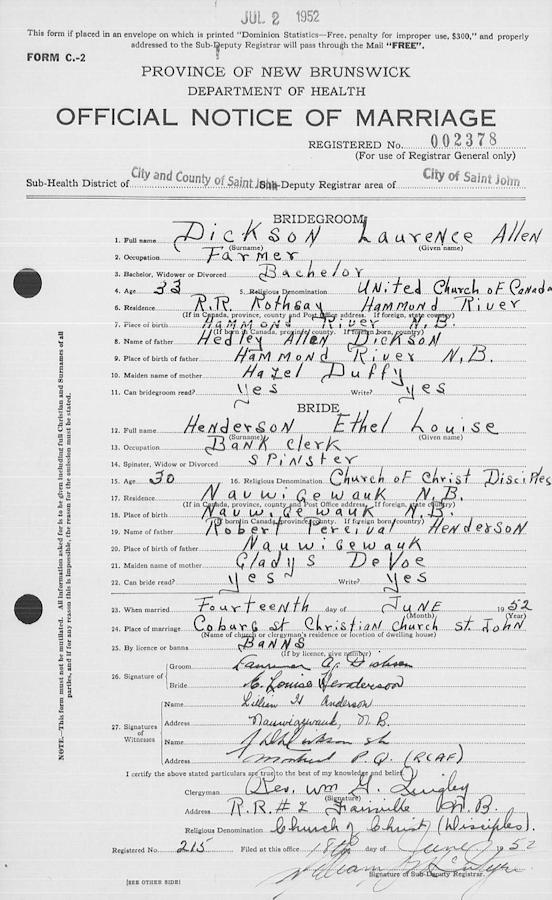 JUL 2 1952
This form if placed in an envelope on which is printed "Dominion Statistics—Free, penalty for improper use, $300," and properly
addressed to the Sub-Deputy Registrar will pass through the Mail "FREE".
FORM C.-2
PROVINCE OF NEW BRUNSWICK
DEPARTMENT OF HEALTH
OFFICIAL NOTICE OF MARRIAGE
REGISTERED No. 002378
(For use of Registrar General only)
Sub-Health District of City and County of Saint John Sub-Deputy Registrar area of City of Saint John
BRIDEGROOM
1. Full name Dickson Laurence Allen
(Surname) (Given name)
2. Occupation Farmer
3. Bachelor, Widower or Divorced Bachelor
4. Age 33 5. Religious Denomination United Church of Canada
6. Residence R.R. Rothsay Hammond River
(If in Canada, province, county and Post Office address. If foreign, state country)
7. Place of birth Hammond River N.B.
(If born in Canada, province, county. If foreign born, country)
8. Name of father Hedley Allen Dickson
9. Place of birth of father Hammond River N.B.
10. Maiden name of mother Hazel Duffy
11. Can bridegroom read? Yes Write? Yes
BRIDE
12. Full name Henderson Ethel Louise
(Surname) (Given name)
13. Occupation Bank Clerk
14. Spinster, Widow or Divorced Spinster
15. Age 30 16. Religious Denomination Church of Christ Disciples
17. Residence Nauwigewauk N.B.
(If in Canada, province, county and Post Office address. If foreign, state country)
18. Place of birth Nauwigewauk N.B.
(If born in Canada, province, county. If foreign born, country)
19. Name of father Robert Percival Henderson
20. Place of birth of father Nauwigewauk
21. Maiden name of mother Gladys DeVoe
22. Can bride read? Yes Write? Yes
23. When married Fourteenth day of June 1952
(Month) (Year)
24. Place of marriage Coburg St Christian Church St. John
(Name of church or clergyman's residence or location of dwelling house)
25. By licence or banns Banns
(If by licence, give number)
26. Signature of Groom Laurence A. Dickson
Bride E. Louise Henderson
27. Signatures of Witnesses Name Lillian H Anderson
Address Nauwigewauk, N.B.
Name
Address Montreal P.Q. (RCAF)
I certify the above stated particulars are true to the best of my knowledge and belief.
Clergyman Rev. Wm G. Quigley
(Signature)
Address R.R. #2 Fairville N.B.
Religious Denomination Church of Christ (Disciples).
Registered No. 215 Filed at this office 18th day of June 1952
Signature of Sub-Deputy Registrar.
[SEE OTHER SIDE]
NOTE.—This form must not be mutilated. All information asked for is to be given including full Christian and Surnames of all
parties, and if for any reason this is impossible, the reason for the omission must be stated.